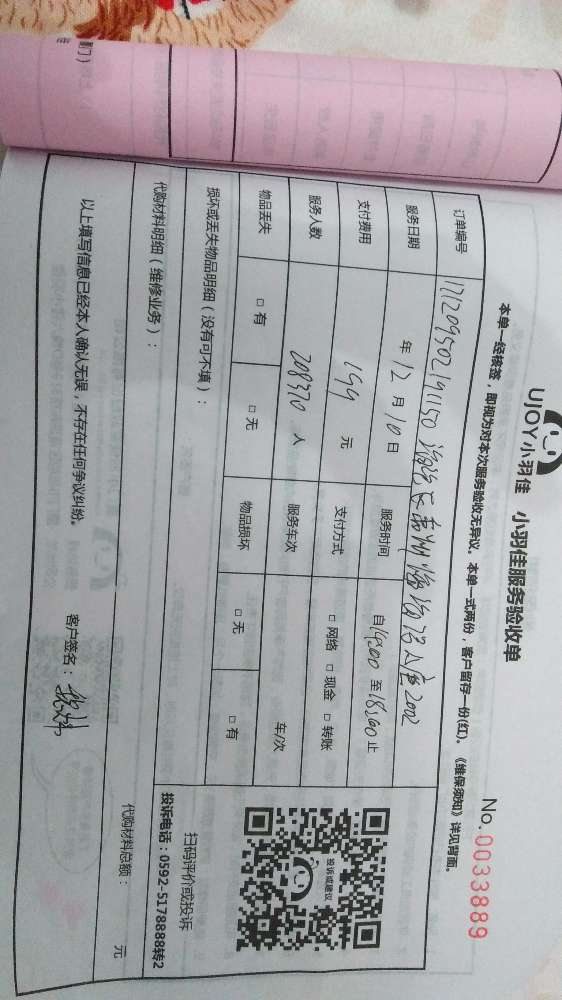 UJOY小羽佳 小羽佳服务验收单
No.0033889
本单一经核签，即视为对本次服务验收无异议。本单一式两份，客户留存一份(红)。《维保须知》详见背面。
订单编号 171209502191150
服务日期 年 12 月 10 日 服务时间 自 14:00 至 18:00 止
支付费用 199 元 支付方式 □ 网络 □ 现金 □ 转账
服务人数 208370 人 服务车次 车/次
物品丢失 □ 有 □ 无 物品损坏 □ 无 □ 有
损坏或丢失物品明细（没有可不填）：
投诉或建议
扫码评价或投诉
投诉电话：0592-5178888转2
代购材料明细（维修业务）：
代购材料总额： 元
以上填写信息已经本人确认无误，不存在任何争议纠纷。
客户签名：